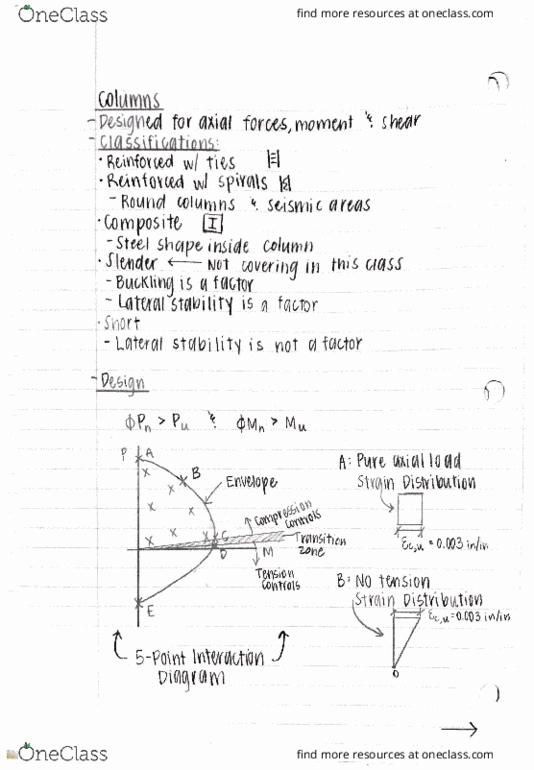 OneClass
find more resources at oneclass.com
Columns
- Designed for axial forces, moment & shear
- Classifications:
· Reinforced w/ ties
· Reinforced w/ spirals
- Round columns & seismic areas
· Composite I
- Steel shape inside column
· Slender ← Not covering in this class
- Buckling is a factor
- Lateral stability is a factor
· Short
- Lateral stability is not a factor
- Design
ΦPn > Pu & ΦMn > Mu
P A
B
Envelope
C
Compression controls
Transition zone
D
M
Tension controls
E
5-Point Interaction
Diagram
A: Pure axial load
Strain Distribution
εc,u = 0.003 in/in
B: No tension
Strain Distribution
εc,u = 0.003 in/in
0
→
OneClass
find more resources at oneclass.com